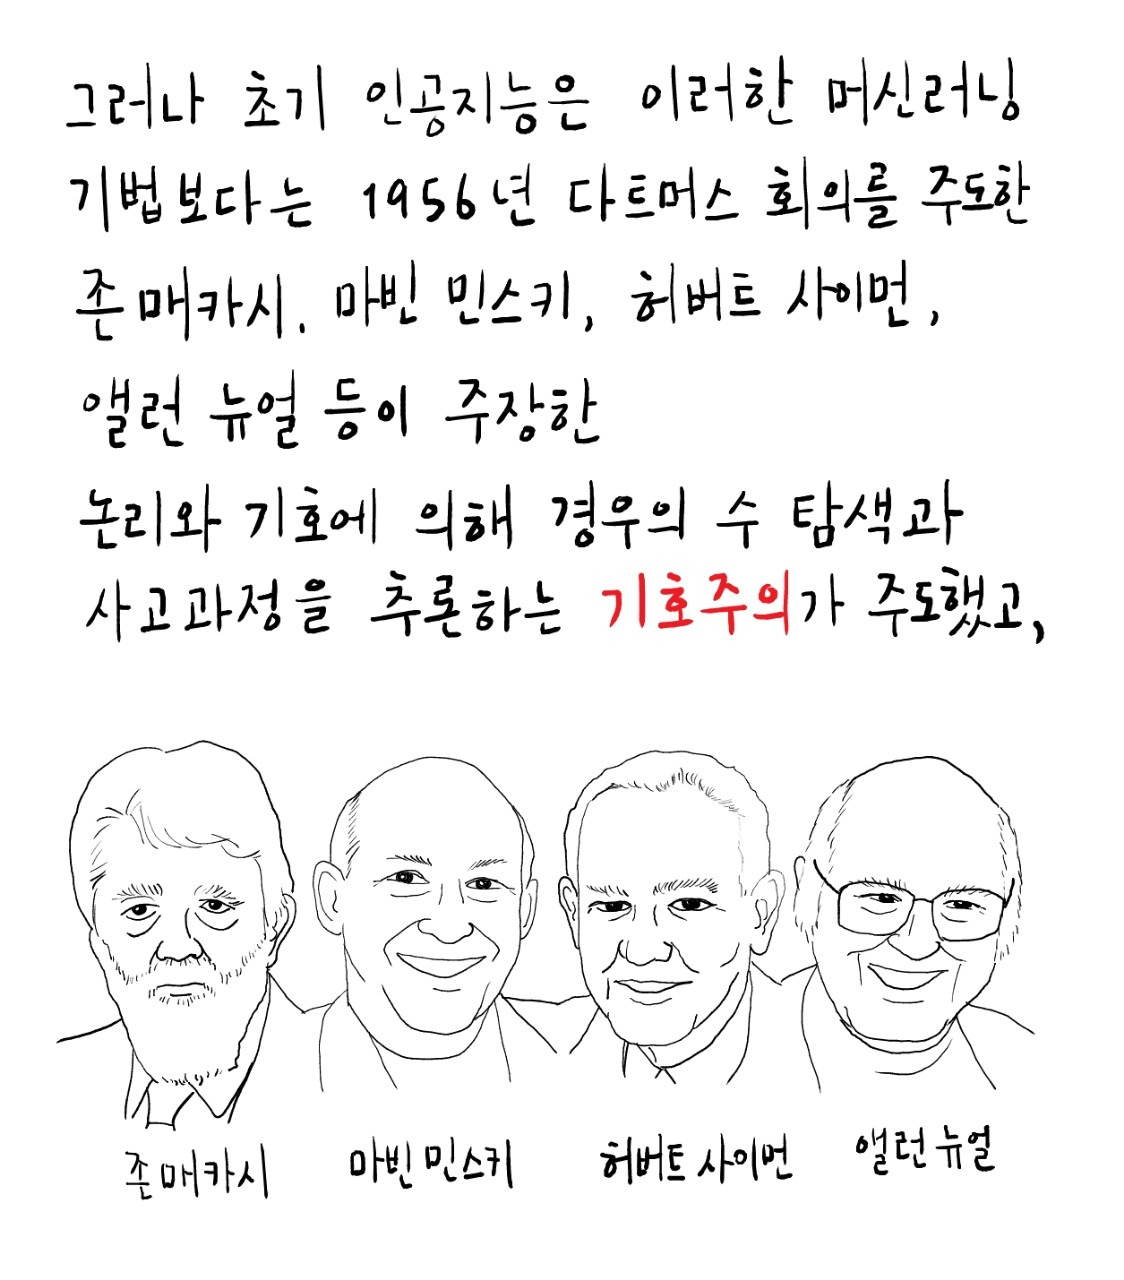 그러나 초기 인공지능은 이러한 머신러닝
기법보다는 1956년 다트머스 회의를 주도한
존 매카시. 마빈 민스키, 허버트 사이먼,
앨런 뉴얼 등이 주장한
논리와 기호에 의해 경우의 수 탐색과
사고과정을 추론하는 기호주의가 주도했고,
존 매카시 마빈 민스키 허버트 사이먼 앨런 뉴얼